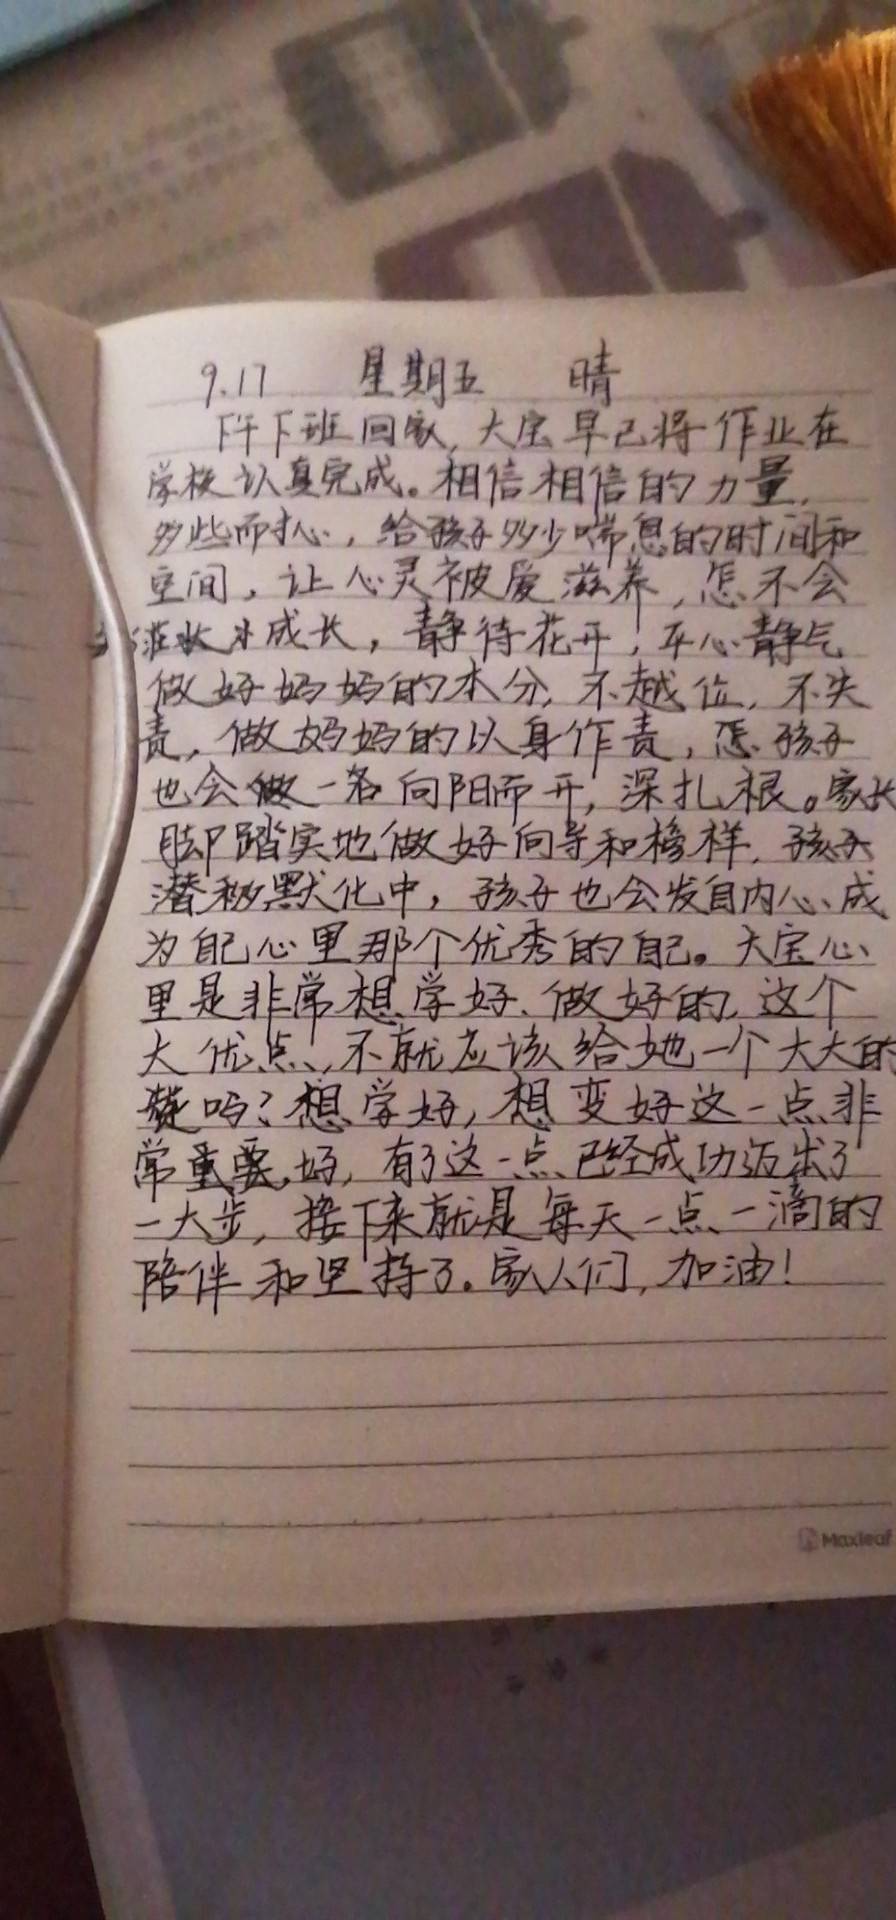 9.17 星期五 晴
下午下班回家,大宝早已将作业在
学校认真完成。相信相信的力量,
多些而扰心,给孩子多少喘息的时间和
空间,让心灵被爱滋养,怎不会
茁壮成长,静待花开,平心静气
做好妈妈的本分,不越位,不失
责,做妈妈的以身作责,怎孩子
也会做一名向阳而开,深扎根。家长
脚踏实地做好向导和榜样,孩子
潜移默化中,孩子也会发自内心成
为自己心里那个优秀的自己。大宝心
里是非常想学好、做好的,这个
大优点,不就应该给她一个大大的
赞吗?想学好,想变好这一点非
常重要,好,有了这一点已经成功迈出了
一大步,接下来就是每天一点一滴的
陪伴和坚持了。家人们,加油!
Maxleaf